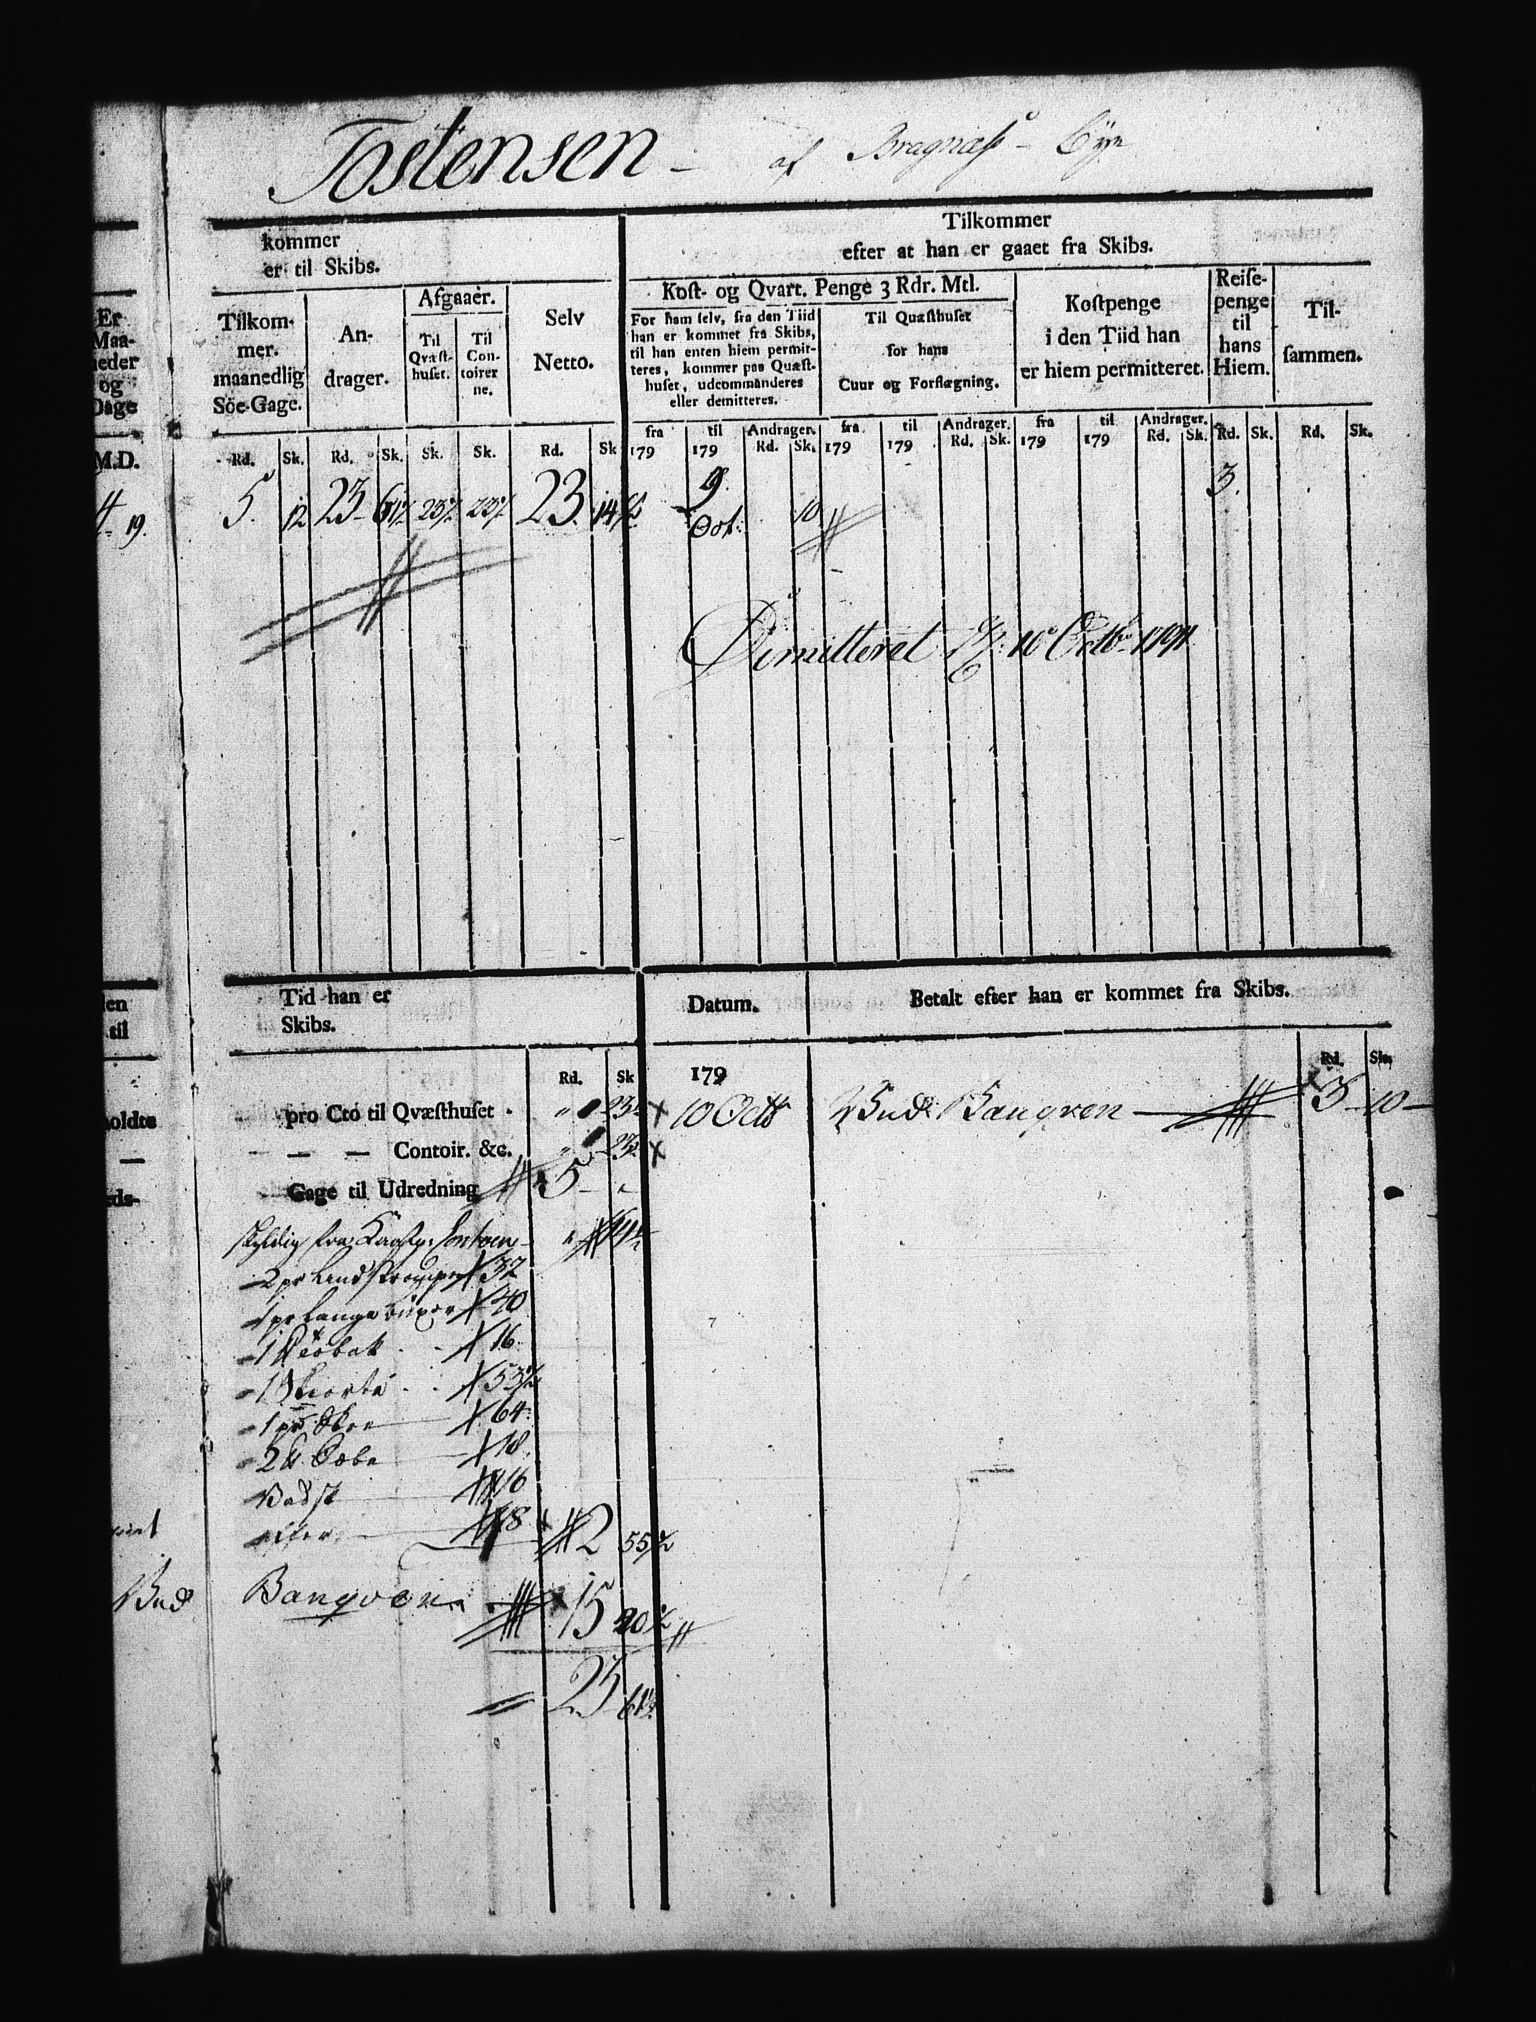 Tostensen - af Bragnæss Bye
kommer
er til Skibs.
Tilkommer
efter at han er gaaet fra Skibs.
Er
Maa-
neder
og
Dage
Tilkom-
mer.
maanedlig
Söe-Gage.
An-
drager.
Afgaaer.
Til
Qvæst-
huset.
Til
Con-
toirer
ne.
Selv
Netto.
Kost- og Qvart. Penge 3 Rdr. Mtl.
For ham selv, fra den Tiid
han er kommet fra Skibs,
til han enten hiem permit-
teres, kommer paa Quæst-
huset, udcommanderes
eller demitteres.
Til Quæsthuset
for hans
Cuur og Forflægning.
Kostpenge
i den Tiid han
er hiem permitteret.
Reise-
penge
til
hans
Hiem.
Til-
sammen.
M.D. Rd. Sk. Rd. Sk. Sk. Sk. Rd. Sk
fra 179 til 179 Andrager. Rd. Sk. fra 179 til 179 Andrager. Rd. Sk. fra 179 til 179 Andrager. Rd. Sk. Rd. Sk. Rd. Sk.
4 19. 5. 12 23 61½ 23½ 23½ 23 14½ 9 Oct. 10 3.
Dimitteret 10 Octb
den
til
Tid han er
Skibs.
Datum.
Betalt efter han er kommet fra Skibs.
Rd. Sk 179 Rd. Sk.
holdte
pro Cto til Qvæsthuset - " 23½ 10 Octb Bud Banqven 3 - 10 -
— — — Contoir. &c. " 23½
Gage til Udredning 5 - -
Skyldig fra Contoir " 14½
2 pr 32
1 pr Lange buxer 40
1 16
1 Skiorte 53½
1 pr Skoe 64
2 ℔ Sæbe 18
16
18 2 55½
Bud
Banqven 15 20½
23 61½